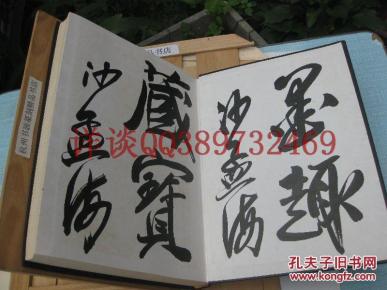 墨趣
沙孟海
藏寶
沙孟海
详谈QQ389732469
孔夫子旧书网
www.kongfz.com